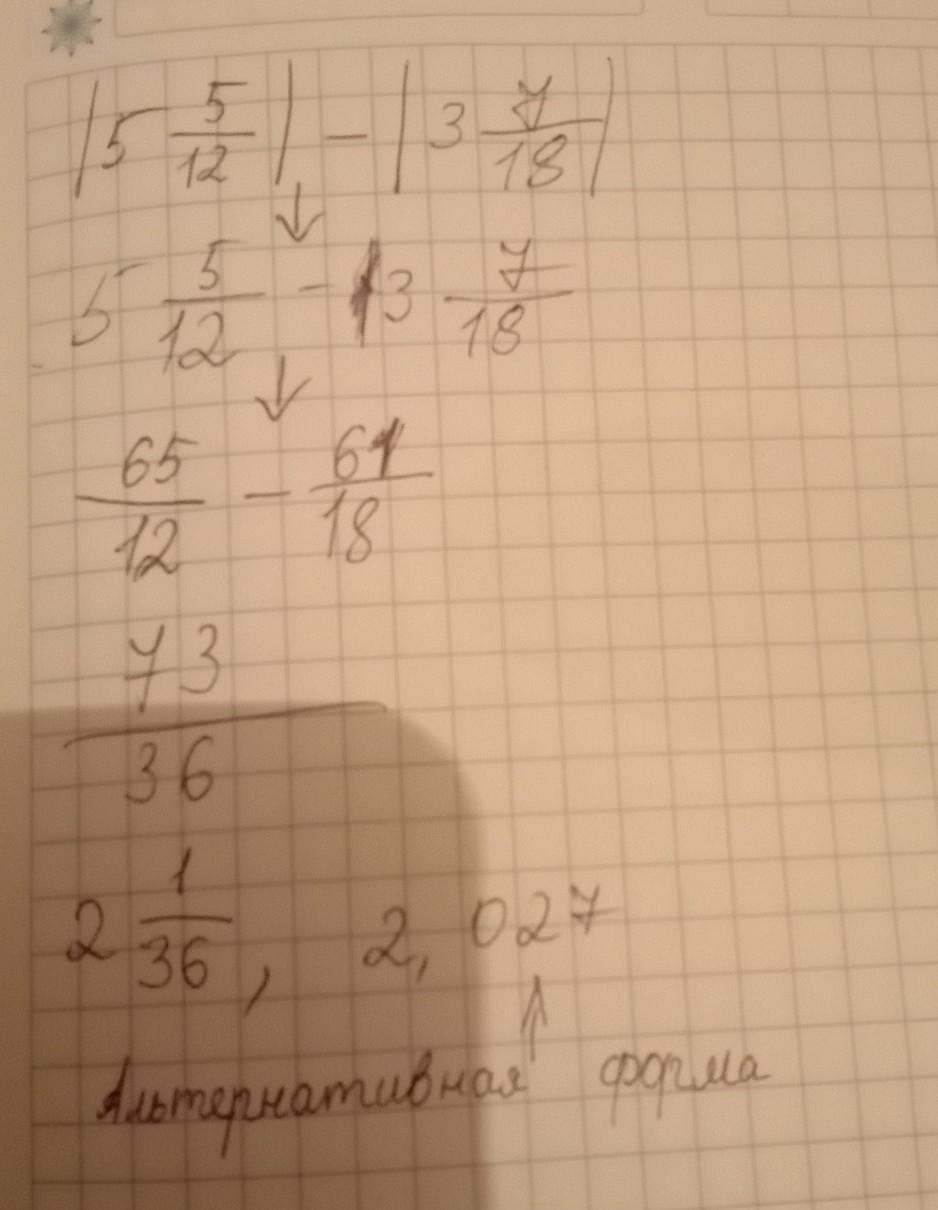 |5 5/12| - |3 7/18|
↓
5 5/12 - 3 7/18
↓
65/12 - 61/18
73/36
2 1/36, 2,027
↑
Альтернативная форма